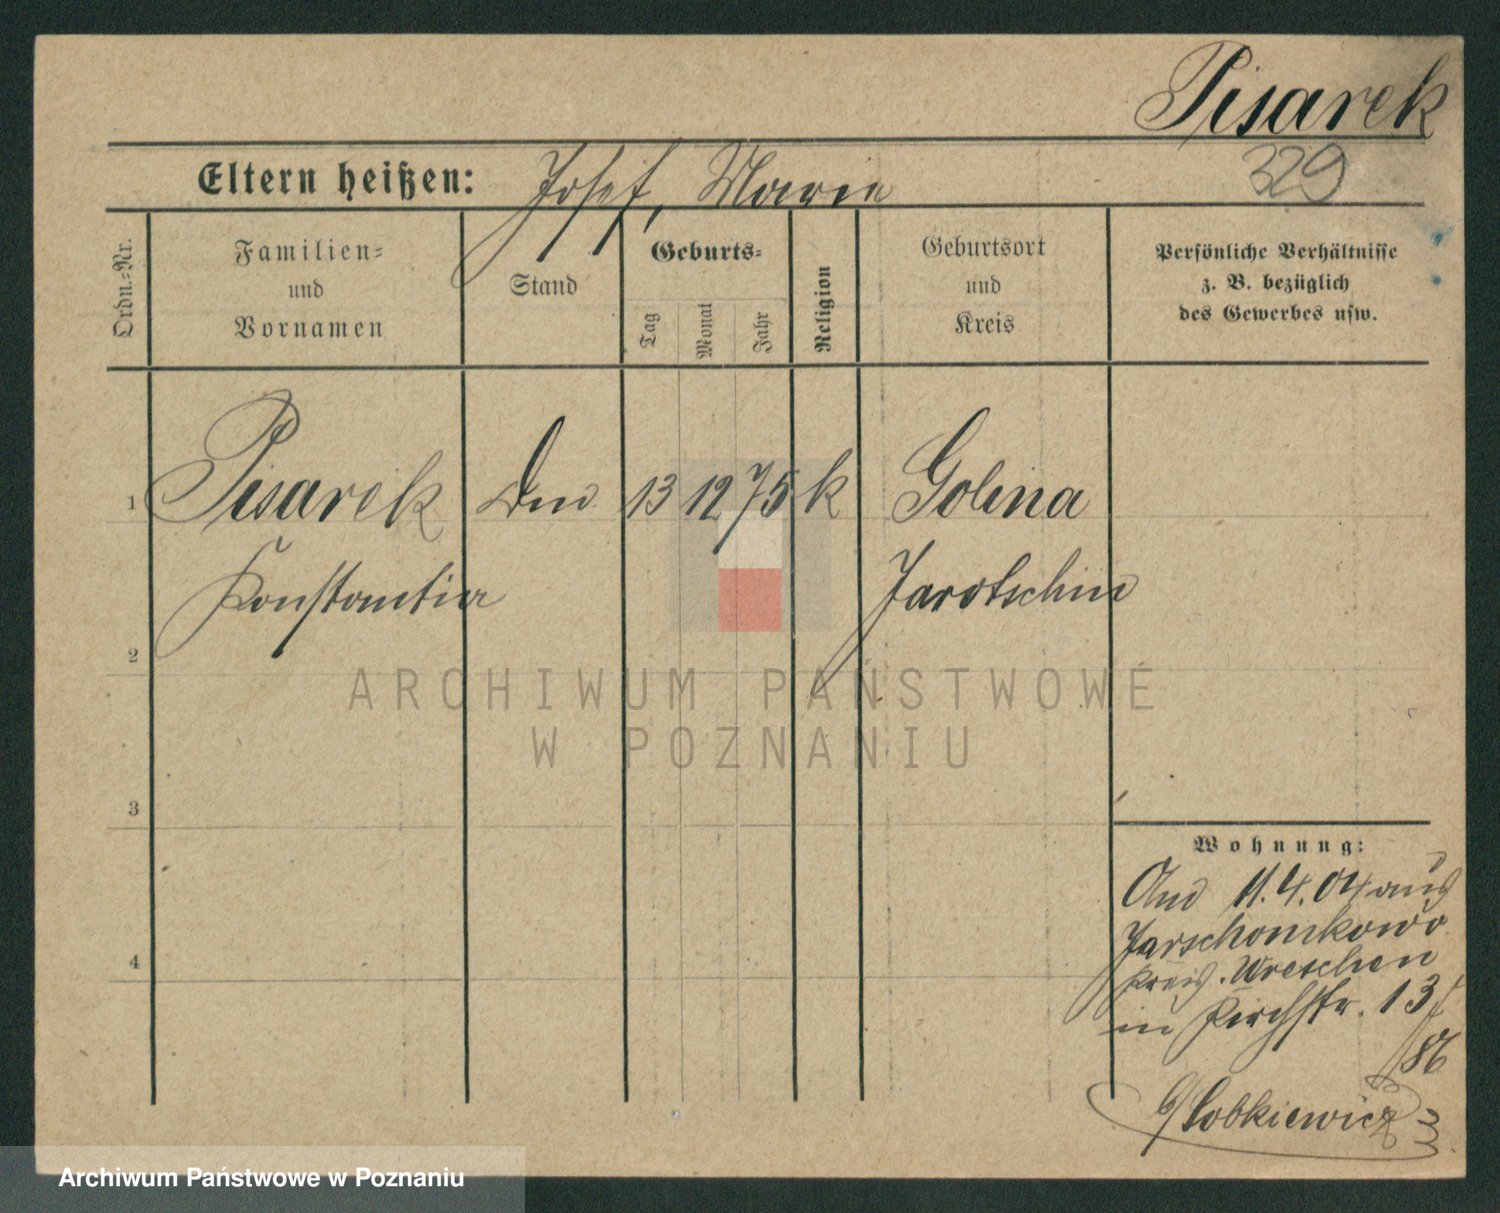 Pisarek
329
Eltern heißen: Josef, Marie
Ordn.-Nr.
Familien-
und
Vornamen
Stand
Geburts-
Tag
Monat
Jahr
Religion
Geburtsort
und
Kreis
Persönliche Verhältnisse
z. B. bezüglich
des Gewerbes usw.
1 Pisarek 13 12 75 k Golina
Konstantia Jarotschin
2
ARCHIWUM PAŃSTWOWE
W POZNANIU
3
Wohnung:
11.4.04 aus
4
Kreis. Wreschen
in Kirchstr. 13
/86
b/ Sobkiewicz
Archiwum Państwowe w Poznaniu